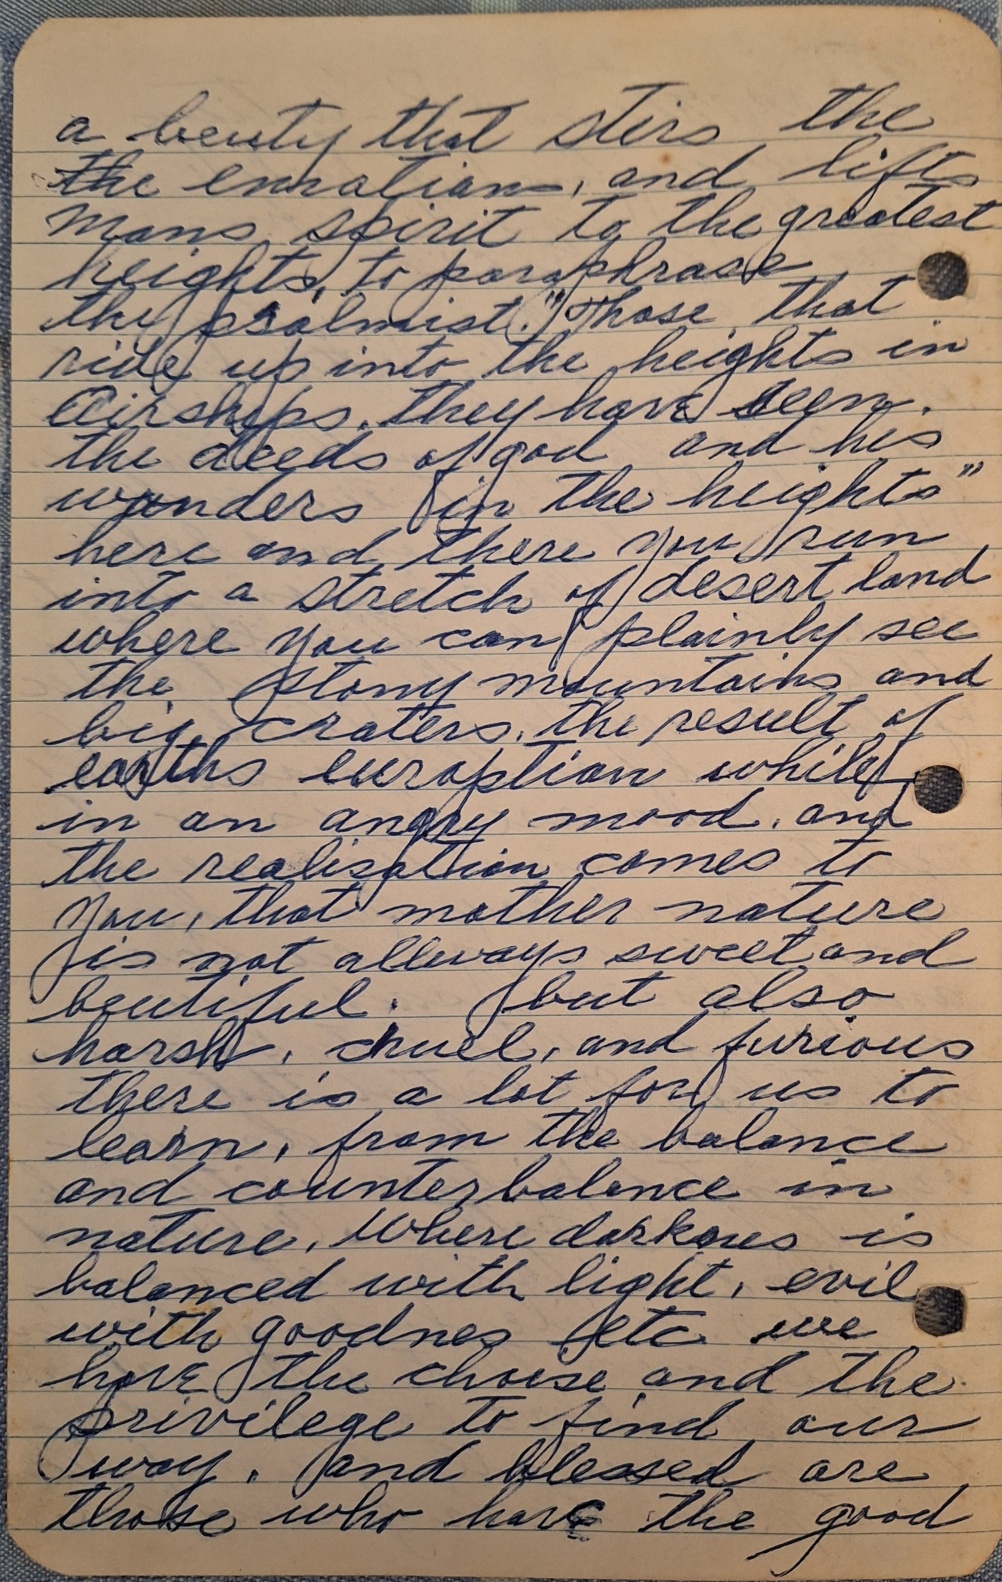 a beuty that stirs the
the emotions, and lifts
mans spirit to the greatest
heights, to paraphrase
the psalmist. "Those that
ride up into the heights in
Airships, they have seen.
the deeds of god and his
wonders in the heights"
here and there you run
into a stretch of desert land
where you can plainly see
the stony mountains and
big craters, the result of
earths euroption while
in an angry mood, and
the realisation comes to
you, that mother nature
is not allways sweet and
beutiful. but also
harsh, cruel, and furious
there is a lot for us to
learn, from the balance
and counterbalance in
nature, where darknes is
balanced with light, evil
with goodnes etc we
have the choise and the
privilege to find our
way, and blessed are
those who have the good